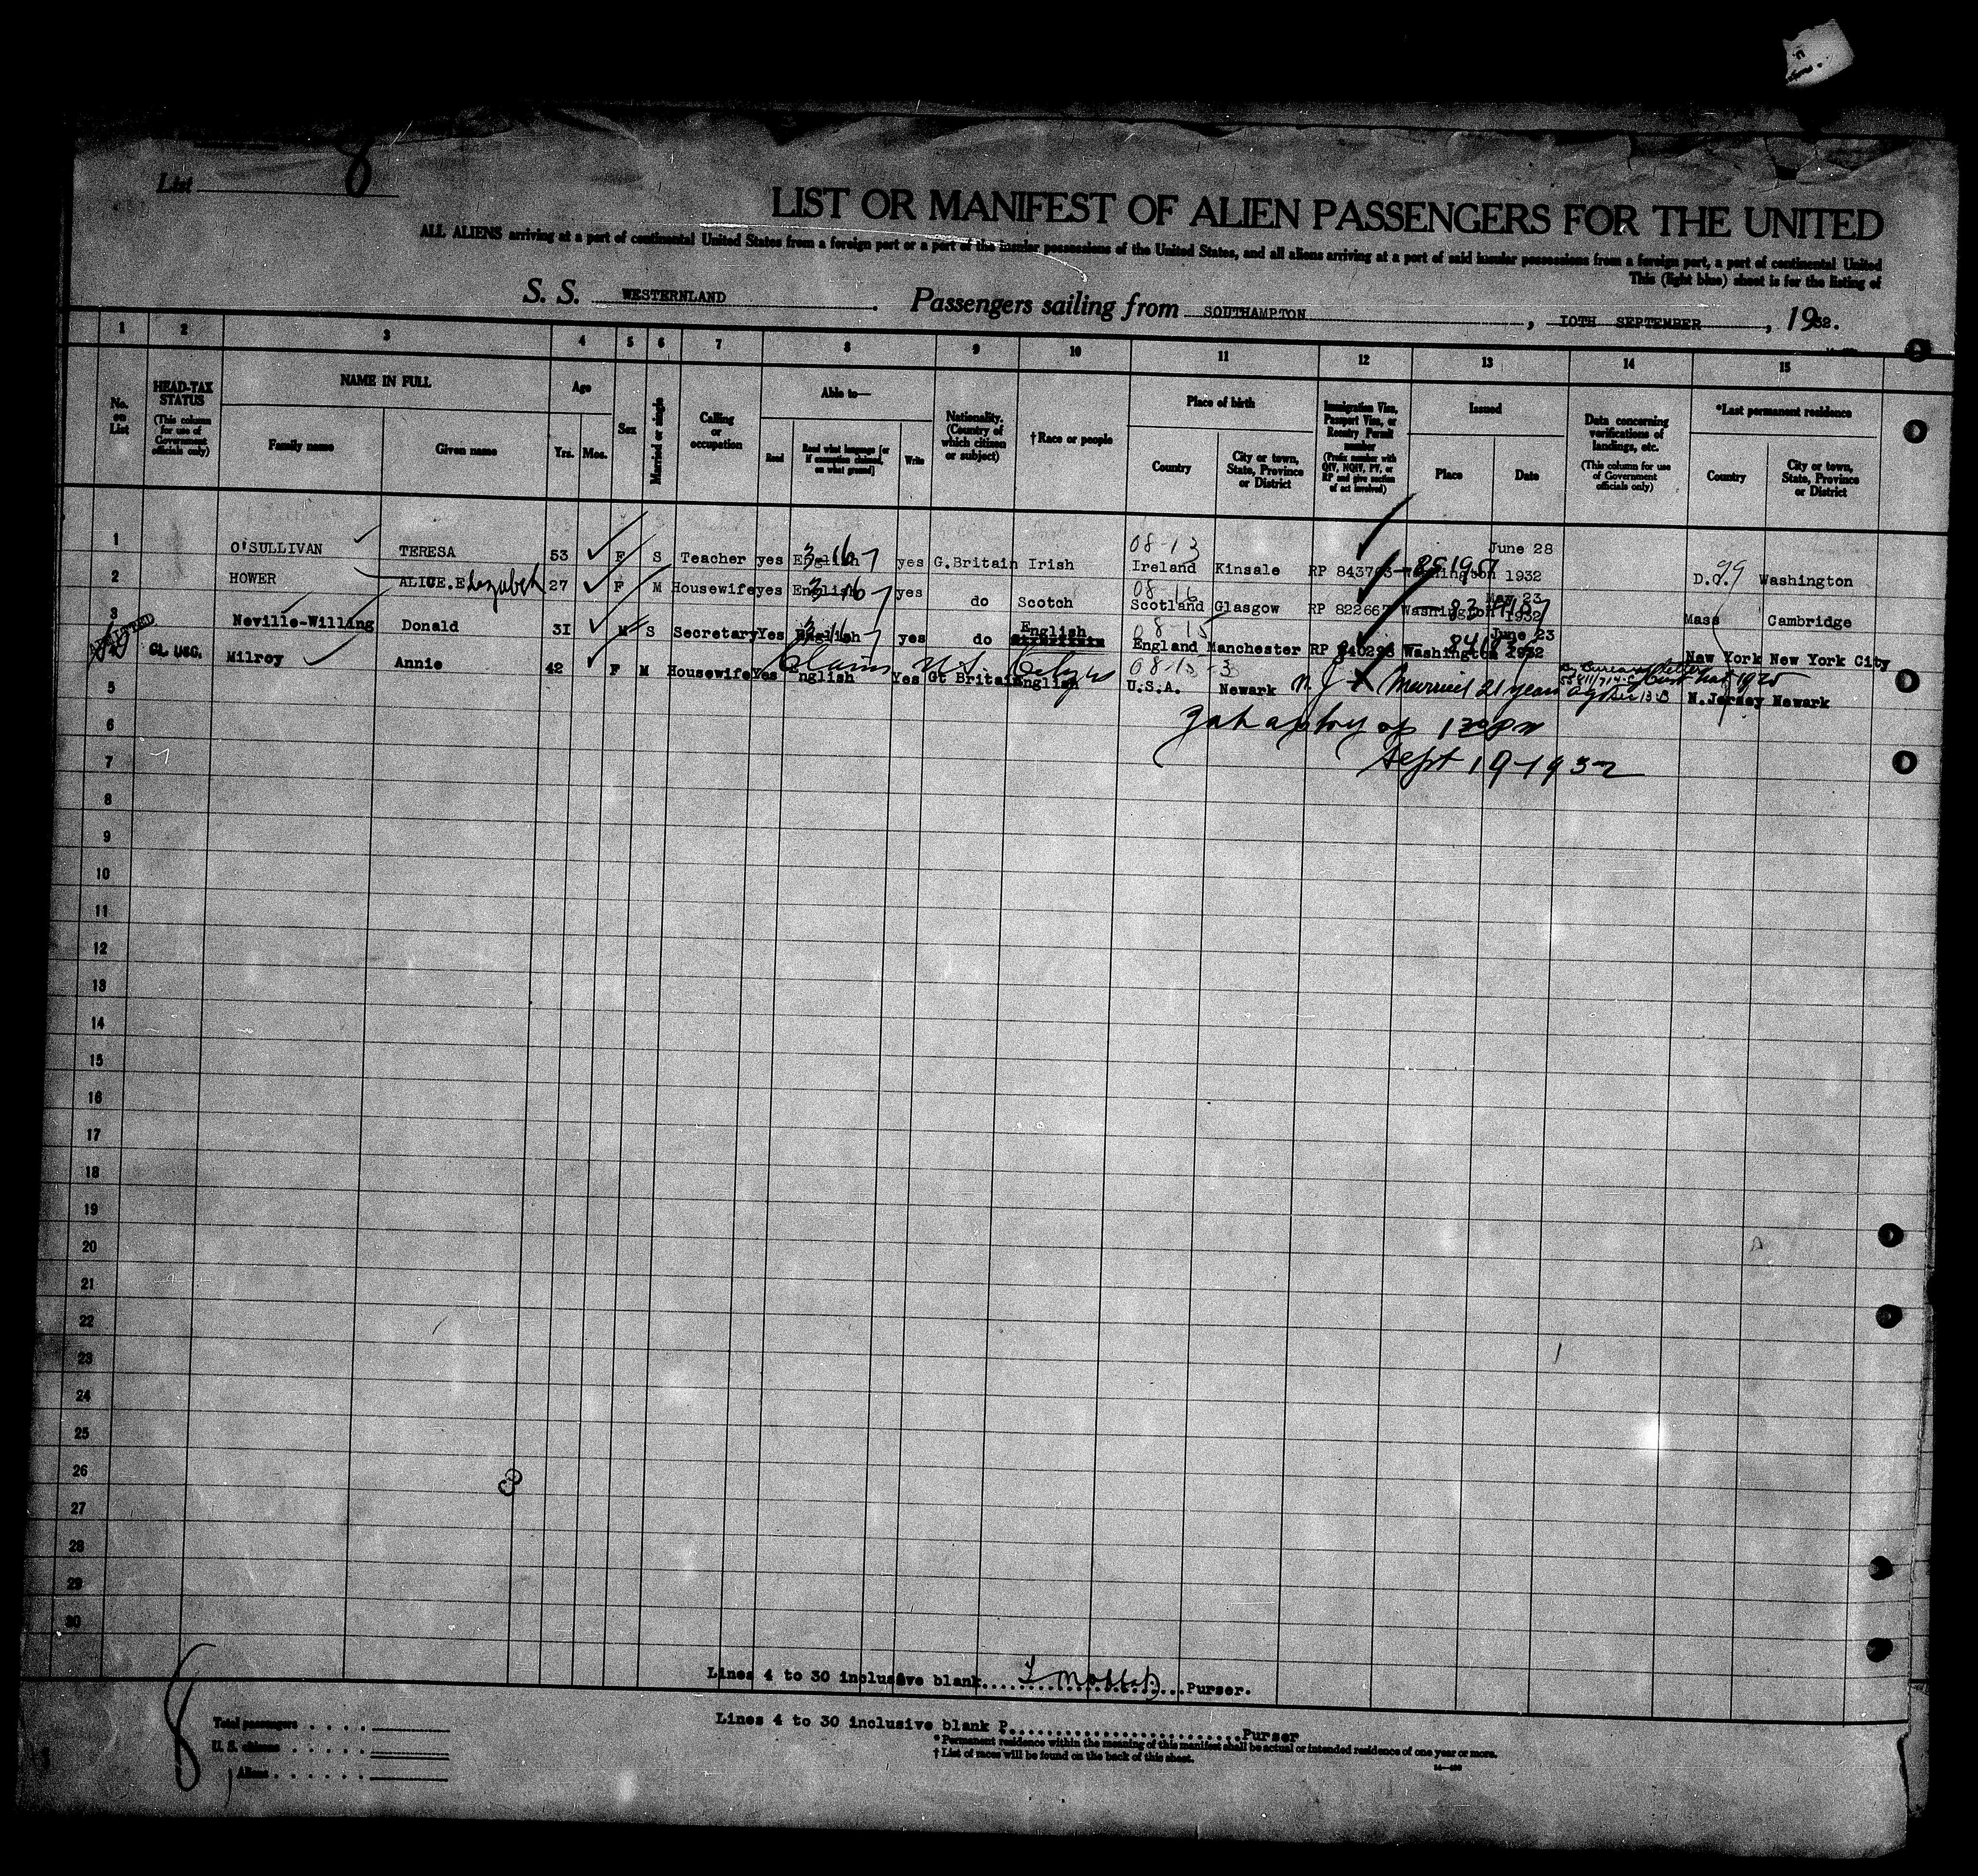 List 8
LIST OR MANIFEST OF ALIEN PASSENGERS FOR THE UNITED
ALL ALIENS arriving at a port of continental United States from a foreign port or a port of the insular possessions of the United States, and all aliens arriving at a port of said insular possessions from a foreign port, a port of continental United
This (light blue) sheet is for the listing of
S. S. WESTERNLAND Passengers sailing from SOUTHAMPTON, 10TH SEPTEMBER, 1932.
1 2 3 4 5 6 7 8 9 10 11 12 13 14 15
No. on List
HEAD-TAX STATUS
(This column for use of Government officials only)
NAME IN FULL
Family name
Given name
Age
Yrs. Mos.
Sex
Married or single
Calling or occupation
Able to—
Read
Read what language [or if exemption claimed, on what ground]
Write
Nationality. (Country of which citizen or subject)
†Race or people
Place of birth
Country
City or town, State, Province or District
Immigration Visa, Passport Visa, or Reentry Permit number
(Prefix number with QIV, NQIV, PV, or RP and give section of act involved)
Issued
Place
Date
Data concerning verifications of landings, etc.
(This column for use of Government officials only)
*Last permanent residence
Country
City or town, State, Province or District
1 O'SULLIVAN TERESA 53 F S Teacher yes English yes G.Britain Irish 08-13 Ireland Kinsale RP Washington June 28 1932 D.C. 99 Washington
2 HOWER ALICE.Elizabeth 27 F M Housewife yes English yes do Scotch 08-16 Scotland Glasgow RP 822667 Washington May 23 1932 Mass Cambridge
3 Neville-Willing Donald 31 M S Secretary Yes English yes do English 08-15 England Manchester RP 840293 Washington June 23 1932 New York New York City
ADMITTED
CL. USC. Milroy Annie 42 F M Housewife Yes English Yes Gt Britain English U.S.A. Newark N.J. Married 21 years N.Jersey Newark
Claims U.S. 08-15-3
Sept 19-1932
5
6
7
8
9
10
11
12
13
14
15
16
17
18
19
20
21
22
23
24
25
26
27
28
29
30
Lines 4 to 30 inclusive blank....................Purser.
Lines 4 to 30 inclusive blank P.........................Purser
8
Total passengers . . . .
U. S. citizens . . . . .
Aliens . . . . . .
*Permanent residence within the meaning of this manifest shall be actual or intended residence of one year or more.
†List of races will be found on the back of this sheet.